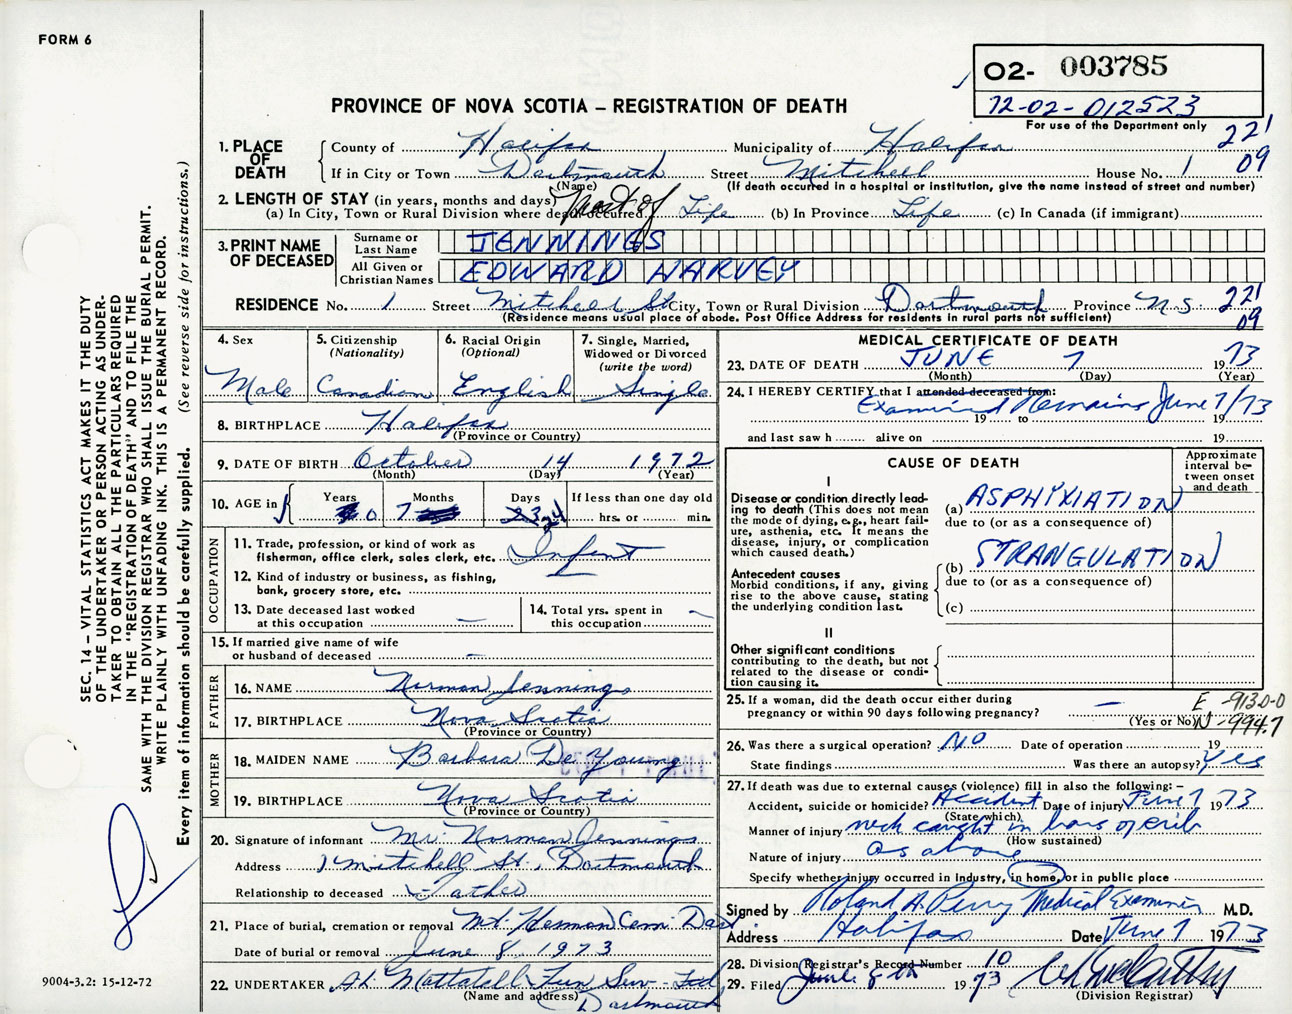 FORM 6
O2- 003785
72-02-012523
For use of the Department only
PROVINCE OF NOVA SCOTIA – REGISTRATION OF DEATH
221
09
1. PLACE OF DEATH
County of Halifax Municipality of Halifax
If in City or Town Dartmouth Street Mitchell House No. 1
(Name) (If death occurred in a hospital or institution, give the name instead of street and number)
2. LENGTH OF STAY (in years, months and days) most of
(a) In City, Town or Rural Division where death occurred Life (b) In Province Life (c) In Canada (if immigrant)
3. PRINT NAME OF DECEASED
Surname or Last Name JENNINGS
All Given or Christian Names EDWARD HARVEY
RESIDENCE No. 1 Street Mitchell St City, Town or Rural Division Dartmouth Province N.S. 221
09
(Residence means usual place of abode. Post Office Address for residents in rural parts not sufficient)
4. Sex
Male
5. Citizenship (Nationality)
Canadian
6. Racial Origin (Optional)
English
7. Single, Married, Widowed or Divorced (write the word)
Single
8. BIRTHPLACE Halifax
(Province or Country)
9. DATE OF BIRTH October 14 1972
(Month) (Day) (Year)
10. AGE in Years Months Days If less than one day old
0 7 24 hrs. or min.
OCCUPATION
11. Trade, profession, or kind of work as fisherman, office clerk, sales clerk, etc. Infent
12. Kind of industry or business, as fishing, bank, grocery store, etc. —
13. Date deceased last worked at this occupation —
14. Total yrs. spent in this occupation —
15. If married give name of wife or husband of deceased —
FATHER
16. NAME Norman Jennings
17. BIRTHPLACE Nova Scotia
(Province or Country)
MOTHER
18. MAIDEN NAME Barbara De Young
19. BIRTHPLACE Nova Scotia
(Province or Country)
20. Signature of informant Mr. Norman Jennings
Address 1 Mitchell St., Dartmouth
Relationship to deceased Father
21. Place of burial, cremation or removal Mt. Herman Cem. Dart.
Date of burial or removal June 8, 1973
22. UNDERTAKER Mattatall Fun Serv Ltd
(Name and address) Dartmouth
MEDICAL CERTIFICATE OF DEATH
23. DATE OF DEATH JUNE 7 1973
(Month) (Day) (Year)
24. I HEREBY CERTIFY that I attended deceased from:
Examined Remains June 7/73
19 to 19
and last saw h alive on 19
CAUSE OF DEATH
Approximate interval between onset and death
I
Disease or condition directly leading to death (This does not mean the mode of dying, e.g., heart failure, asthenia, etc. It means the disease, injury, or complication which caused death.)
(a) ASPHYXIATION
due to (or as a consequence of)
Antecedent causes
Morbid conditions, if any, giving rise to the above cause, stating the underlying condition last.
(b) STRANGULATION
due to (or as a consequence of)
(c)
II
Other significant conditions contributing to the death, but not related to the disease or condition causing it.
25. If a woman, did the death occur either during pregnancy or within 90 days following pregnancy? —
(Yes or No)
E -913.0-0
N -994.7
26. Was there a surgical operation? NO Date of operation 19
State findings Was there an autopsy? Yes
27. If death was due to external causes (violence) fill in also the following: –
Accident, suicide or homicide? Accident Date of injury June 7 1973
(State which)
Manner of injury neck caught in bars of crib
(How sustained)
Nature of injury as above
Specify whether injury occurred in Industry, in home, or in public place
Signed by Roland A. Perry Medical Examiner M.D.
Address Halifax Date June 7 1973
28. Division Registrar's Record Number 10
29. Filed June 8th 1973
(Division Registrar)
SEC. 14 – VITAL STATISTICS ACT MAKES IT THE DUTY
OF THE UNDERTAKER OR PERSON ACTING AS UNDER-
TAKER TO OBTAIN ALL THE PARTICULARS REQUIRED
IN THE "REGISTRATION OF DEATH" AND TO FILE THE
SAME WITH THE DIVISION REGISTRAR WHO SHALL ISSUE THE BURIAL PERMIT.
WRITE PLAINLY WITH UNFADING INK. THIS IS A PERMANENT RECORD.
Every item of information should be carefully supplied. (See reverse side for instructions.)
9004-3.2: 15-12-72